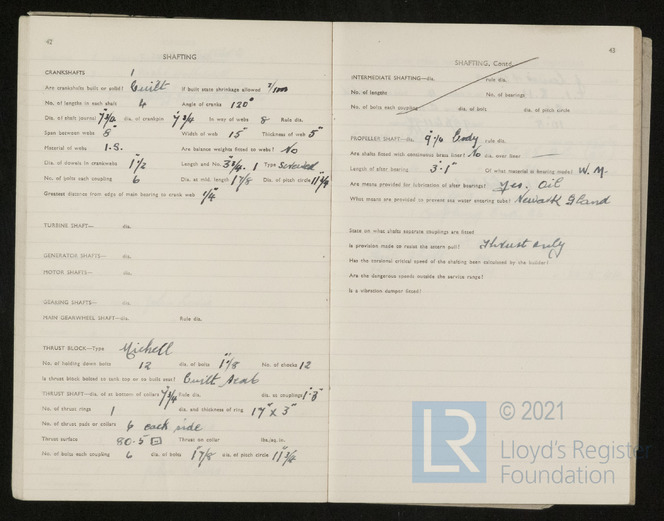 42
SHAFTING
CRANKSHAFTS 1
Are crankshafts built or solid? Built If built state shrinkage allowed
No. of lengths in each shaft 4 Angle of cranks 120°
Dia. of shaft journal 7 3/4" dia. of crankpin 7 3/4 In way of webs 8 Rule dia.
Span between webs 8" Width of web 15" Thickness of web 5"
Material of webs I.S. Are balance weights fitted to webs? No
Dia. of dowels in crankwebs 1 1/2 Length and No. 3 3/4. 1 Type Screwed
No. of bolts each coupling 6 Dia. at mid. length 1 7/8 Dia. of pitch circle 11 3/4"
Greatest distance from edge of main bearing to crank web 1/4"
TURBINE SHAFT— dia.
GENERATOR SHAFTS— dia.
MOTOR SHAFTS— dia.
GEARING SHAFTS— dia.
MAIN GEARWHEEL SHAFT—dia. Rule dia.
THRUST BLOCK—Type Michell
No. of holding down bolts 12 dia. of bolts 1 1/8" No. of chocks 12
Is thrust block bolted to tank top or to built seat? Built Seat
THRUST SHAFT—dia. at bottom of collars 7 3/4" Rule dia. dia. at couplings
No. of thrust rings 1 dia. and thickness of ring 17" x 3"
No. of thrust pads or collars 6 each side
Thrust surface 80.5 Thrust on collar lbs./sq. in.
No. of bolts each coupling 6 dia. of bolts 1 7/8" dia. of pitch circle 11 3/4"
43
SHAFTING, Contd.
INTERMEDIATE SHAFTING—dia. rule dia.
No. of lengths No. of bearings
No. of bolts each coupling dia. of bolt dia. of pitch circle
PROPELLER SHAFT—dia. Body rule dia.
Are shafts fitted with continuous brass liner? No dia. over liner —
Length of stern bearing 3'.1" Of what material is bearing made? W.M.
Are means provided for lubrication of stern bearing? Yes. Oil
What means are provided to prevent sea water entering tube? Newark Gland
State on what shafts separate couplings are fitted
Is provision made to resist the astern pull? Thrust only
Has the torsional critical speed of the shafting been calculated by the builder?
Are the dangerous speeds outside the service range?
Is a vibration damper fitted?
LR © 2021
Lloyd's Register
Foundation